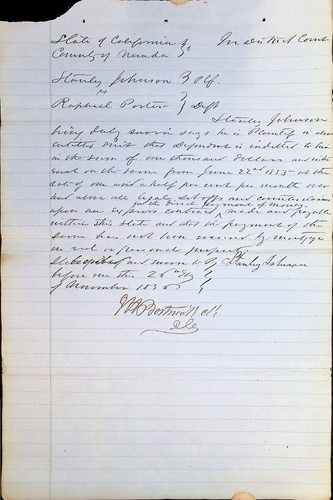 State of California
County of Nevada } In District Court
Stanley Johnson } Plf.
vs
Raphael Porter } Deft
Stanley Johnson
being duly sworn says he is Plaintiff in above
entitled suit that Defendant is indebted to him
in the sum of one thousand dollars and interest
on the same from June 22nd 1855 at the
rate of one and a half per cent per month over
and above all legal set offs and counterclaims
upon an express contract for the direct payment of money made and payable
within this State and that the payment of the
same has not been secured by mortgage
on real or personal property
Subscribed and sworn to } Stanley Johnson
before me this 26th day
of November